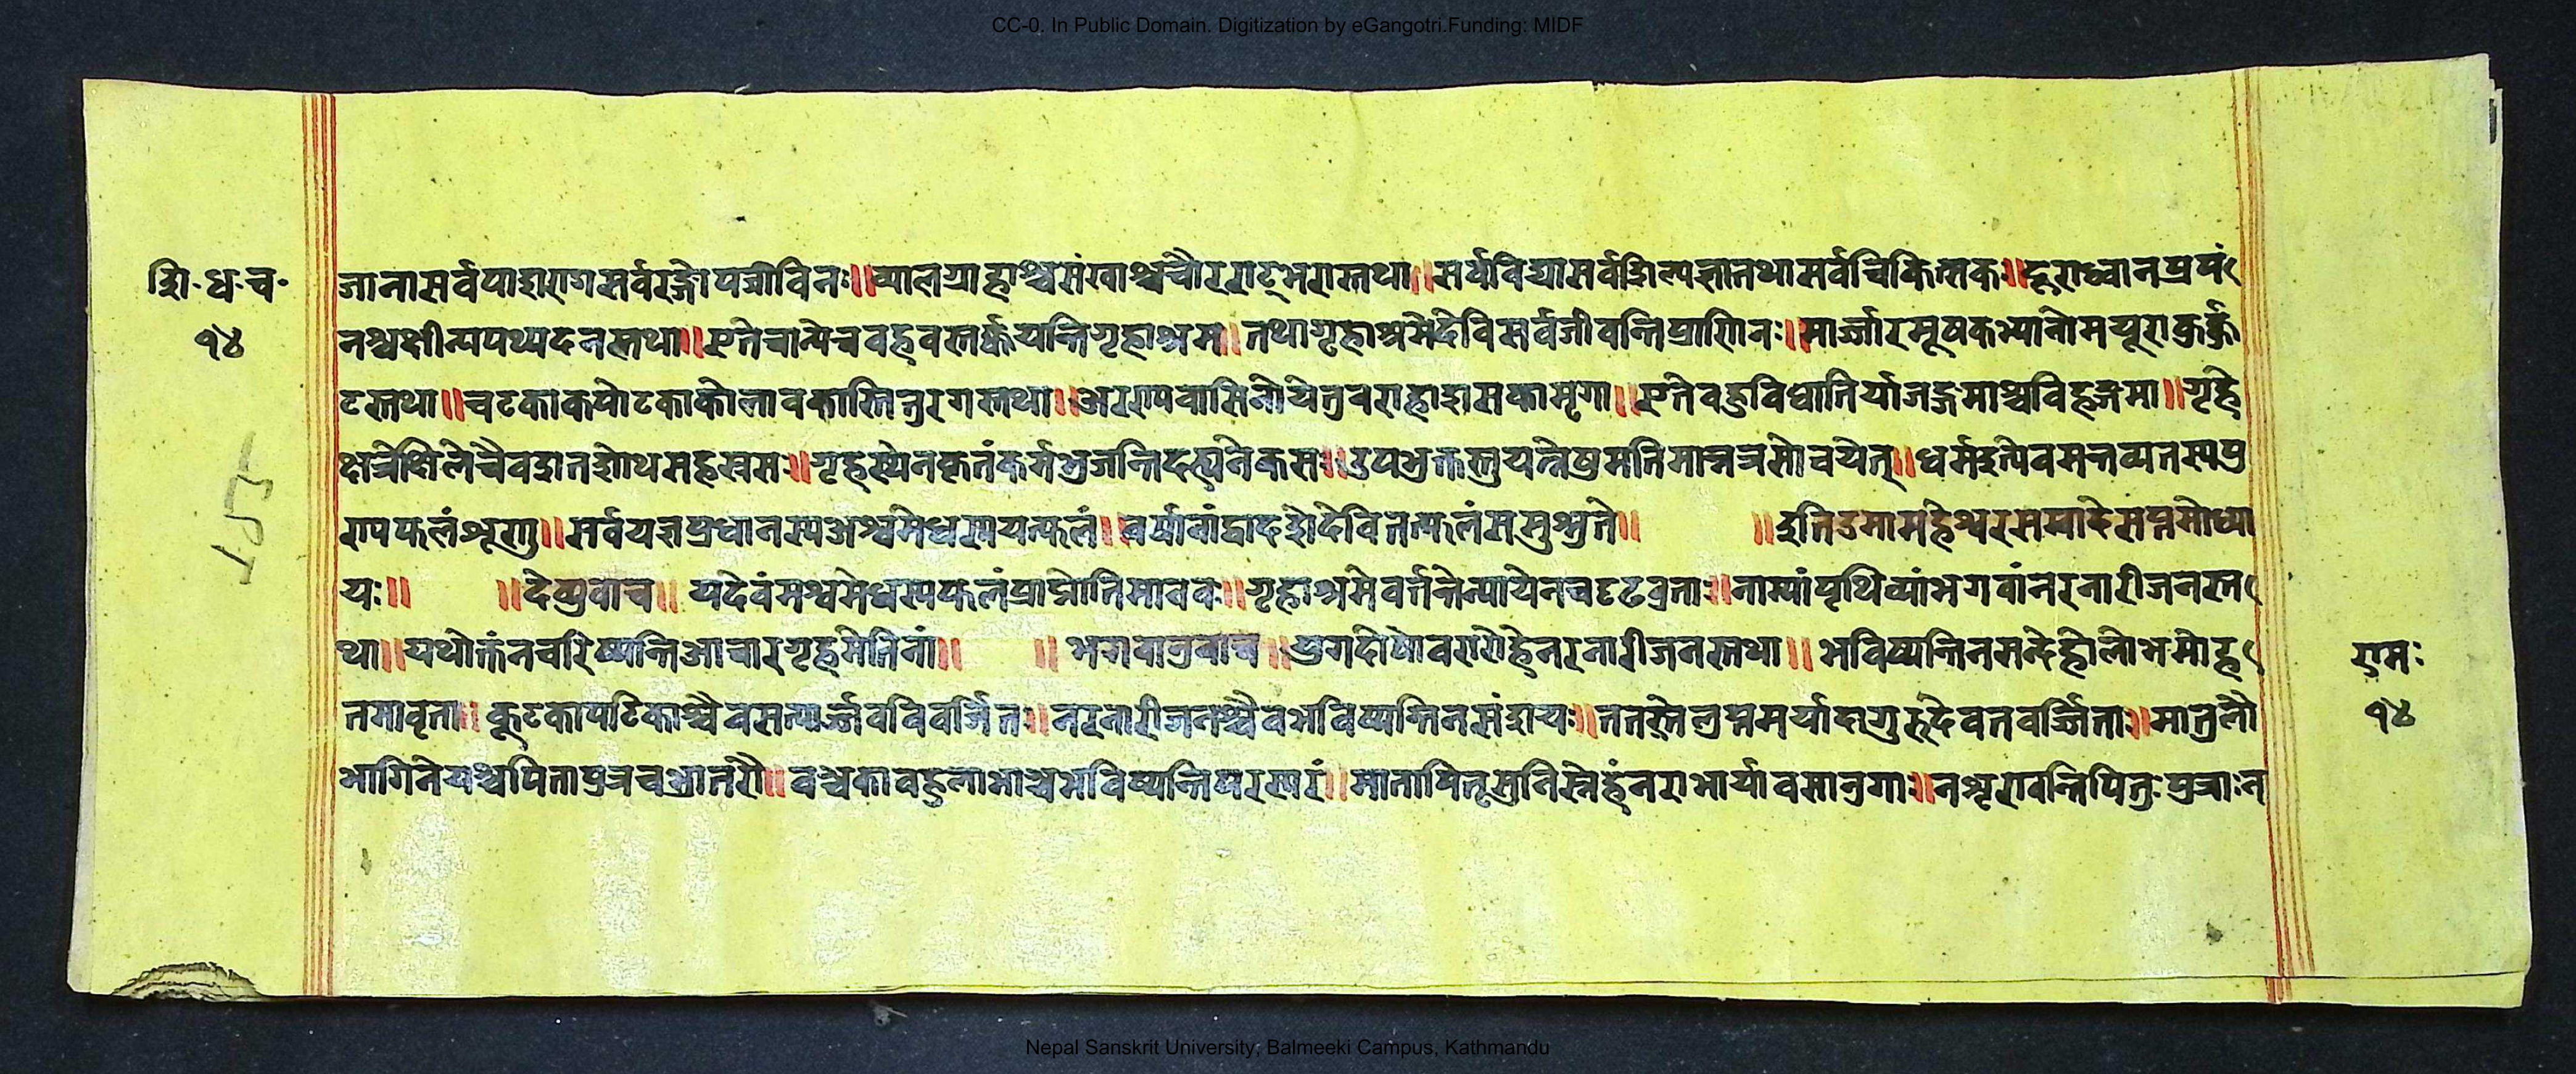 CC-0. In Public Domain. Digitization by eGangotri.Funding: MIDF
शि॰ ध॰ च॰
१४
जानासर्वपाशरागसर्वरङ्गोपजीविनः॥व्यालग्राहाश्चसंखाश्चचौरराट्भरास्तथा॥सर्वविद्यासर्वशिल्पज्ञातथासर्वचिकित्सकः॥दूराध्वानप्रपं
नश्चक्षीन्यपथ्यदनस्तथा॥एतेचान्येचवहवस्तर्क्कयन्तिगृहाश्रम॥तथागृहाश्रमेदेविसर्वजीवन्तिप्राणिनः॥मार्ज्जारमूषकश्वानोमयूराकुर्क्कु
टस्तथा॥चटकाकपोटकाकोलावकास्तितुरगस्तथा॥अरण्यवासिनोयेतुवराहाशसकामृगा॥एतेवहुविधातिर्याजङ्गमाश्चविहङ्गमा॥गृहे
क्षत्रेक्षिलेचैवशतशोथसहस्रसः॥गृहस्थेनकृतंकर्मभुजन्तिदस्त्यनेकसः॥उपभुक्तस्तुयन्तेषामतिमान्नत्रसोचयेत्॥धर्मइत्येवमन्तव्यतस्यपु
ण्यफलंशृणु॥सर्वयज्ञप्रधानस्यअश्वमेधस्ययत्फलं॥वर्षाणांद्वादशेदेवितत्फलंससुश्नुते॥ ॥इतिउमामहेश्वरसम्वादेसप्तमोध्या
यः॥ ॥देव्युवाच॥ यदेवंमश्वमेधस्यफलंप्राप्नोतिमानवः॥गृहाश्रमेवर्त्तन्तेन्यायेनचदृढव्रताः॥नाम्यांपृथिव्यांभगवांनरनारीजनस्त
था॥यथोक्तंनचरिष्यन्तिआचारगृहमेतिनां॥ ॥भगवानुवाच॥युगदोषोवरारोहेनरनारीजनस्तथा॥भविष्यन्तिनसन्देहोलोभमोह
तमावृता॥कूटकापटिकाश्चैवसत्यार्ज्जवविवर्जितः॥नरनारीजनश्चैवभविष्यन्तिनसंशयः॥ततस्तेलुप्तमर्यादागुरुदेवतवर्ज्जिताः॥मातुलौ
भागिनेयश्चपितापुत्रचभ्रातरौ॥वञ्चकावहुलोभाश्चभविष्यन्तिपरस्परं॥मातापितृसुनिस्नेहंनराभार्यावसानुगाः॥नशृण्वन्तिपितुःपुत्राःन
रामः
१४
Nepal Sanskrit University, Balmeeki Campus, Kathmandu